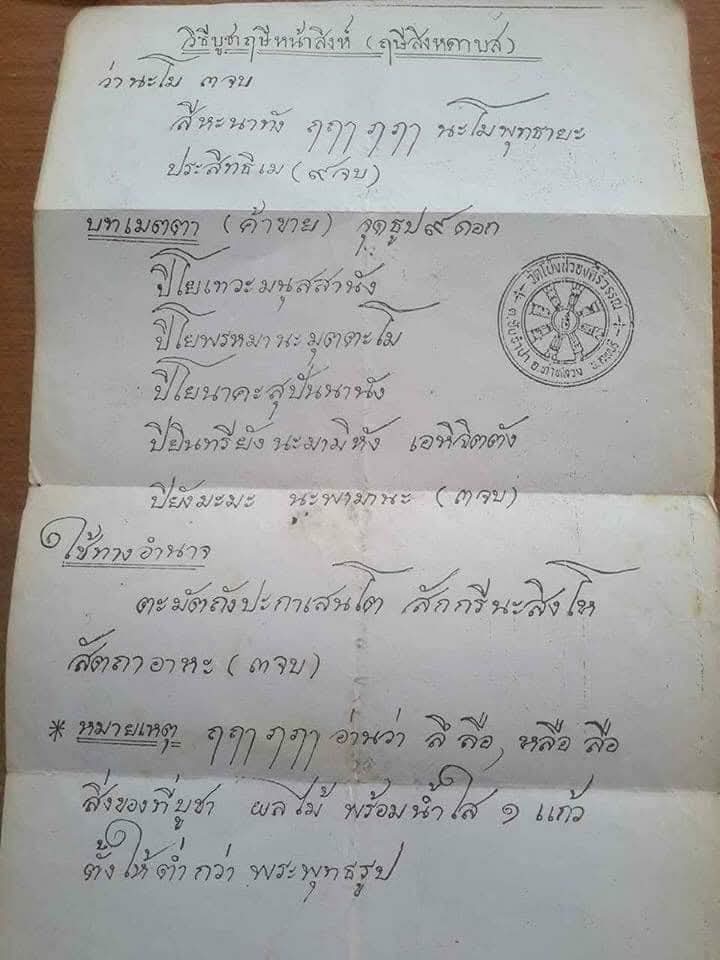 วิธีบูชาฤษีหน้าสิงห์ (ฤษีสิงหดาบส)
ว่านะโม ๓ จบ
สีหะนาทัง ฤฤๅ ฦฦๅ นะโมพุทธายะ
ประสิทธิเม (๙ จบ)
บทเมตตา (ค้าขาย) จุดธูป ๙ ดอก
ปิโยเทวะมนุสสานัง
ปิโยพรหมานะมุตตะโม
ปิโยนาคะสุปันนานัง
ปิยินทรียังนะมามิหัง เอหิจิตตัง
ปิยังมะมะ นะพามานะ (๓ จบ)
ใช้ทางอำนาจ
ตะมัตถังปะกาเสนโต สักกรีนะสิงโห
สัตถาอาหะ (๓ จบ)
* หมายเหตุ ฤฤๅ ฦฦๅ อ่านว่า ลึ ลือ, หลือ ลือ
สิ่งของที่บูชา ผลไม้ พร้อมน้ำใส ๑ แก้ว
ตั้งให้ต่ำกว่า พระพุทธรูป